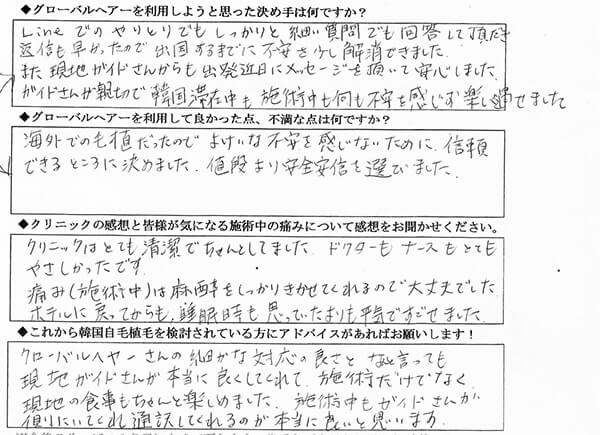 ◆グローバルヘアーを利用しようと思った決め手は何ですか？
Lineでのやりとりでもしっかりと細い質問でも回答して頂だき
返信も早かったので出国するまでに不安を少し解消できました。
また現地ガイドさんからも出発近日にメッセージを頂いて安心しました。
ガイドさんが親切で韓国滞在中も施術中も何も不安を感じず楽し過せました
◆グローバルヘアーを利用して良かった点、不満な点は何ですか？
海外でのも植だったのでよけいな不安を感じないために、信頼
できるところに決めました。値段より安全安信を選びました。
◆クリニックの感想と皆様が気になる施術中の痛みについて感想をお聞かせください。
クリニックはとても清潔でちゃんとしてました。ドクターもナースもとても
やさしかったです。
痛み(施術中)は麻酔をしっかりきかせてくれるので大丈夫でした
ホテルに戻ってからも、睡眠時も思っていたよりも平気ですごせました。
◆これから韓国自毛植毛を検討されている方にアドバイスがあればお願いします！
クローバルヘヤーさんの細かな対応の良さと なんと言っても
現地ガイドさんが本当に良くしてくれて、施術だけでなく、
現地の食事もちゃんと楽しめました。施術中もガイドさんが
側りにいてくれ通訳してくれるのが本当に良いと思います。